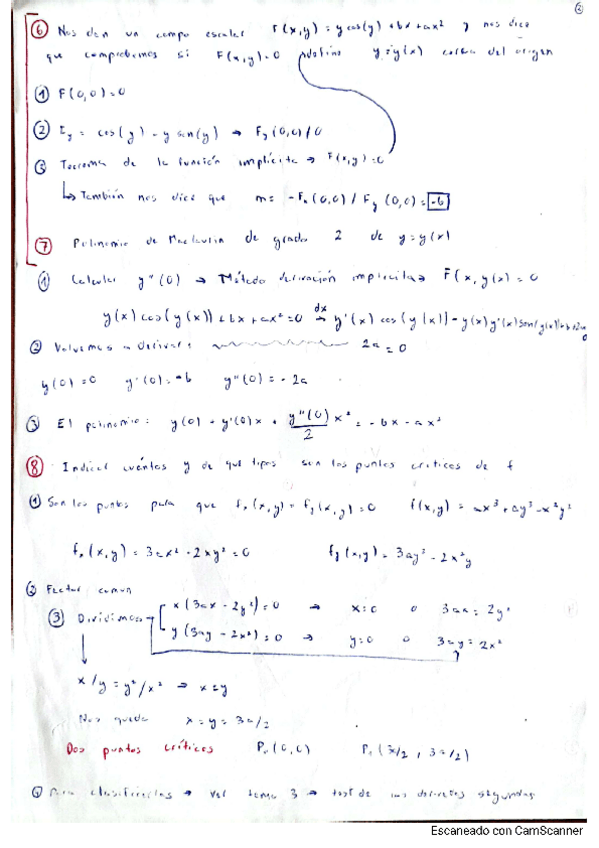 ②
⑥ Nos dan un campo escalar F(x,y) = y cos(y) + bx + ax² y nos dice
que comprobemos si F(x,y)=0 define y=y(x) cerca del origen
① F(0,0)=0
② Fy = cos(y) - y sen(y) → Fy(0,0)≠0
③ Teorema de la función implícita → F(x,y)=0
↳ También nos dice que m= -Fx(0,0) / Fy(0,0) = -b
⑦ Polinomio de Maclaurin de grado 2 de y=y(x)
① Calcular y''(0) → Método derivación implícita → F(x,y(x)) = 0
y(x) cos(y(x)) + bx + ax² = 0 dx→ y'(x) cos(y(x)) - y(x)y'(x)sen(y(x))+b+2ax
② Volvemos a derivar: 2a = 0
y(0)=0 y'(0)=-b y''(0) = -2a
③ El polinomio: y(0) + y'(0)x + y''(0)/2 x² = -bx - ax²
⑧ Indicar cuántos y de qué tipos son los puntos críticos de f
① Son los puntos para que fx(x,y) = fy(x,y) = 0 f(x,y) = ax³ + ay³ - x²y²
fx(x,y) = 3ax² - 2xy² = 0 fy(x,y) = 3ay² - 2x²y
② Factor común
③ Dividimos x(3ax - 2y²)=0 → x=0 o 3ax = 2y²
y(3ay - 2x²)=0 → y=0 o 3ay = 2x²
x/y = y²/x² → x=y
Nos queda x=y=3a/2
Dos puntos críticos P₁(0,0) P₂(3a/2, 3a/2)
④ Para clasificarlos → ver tema 3 → test de las derivadas segundas
Escaneado con CamScanner